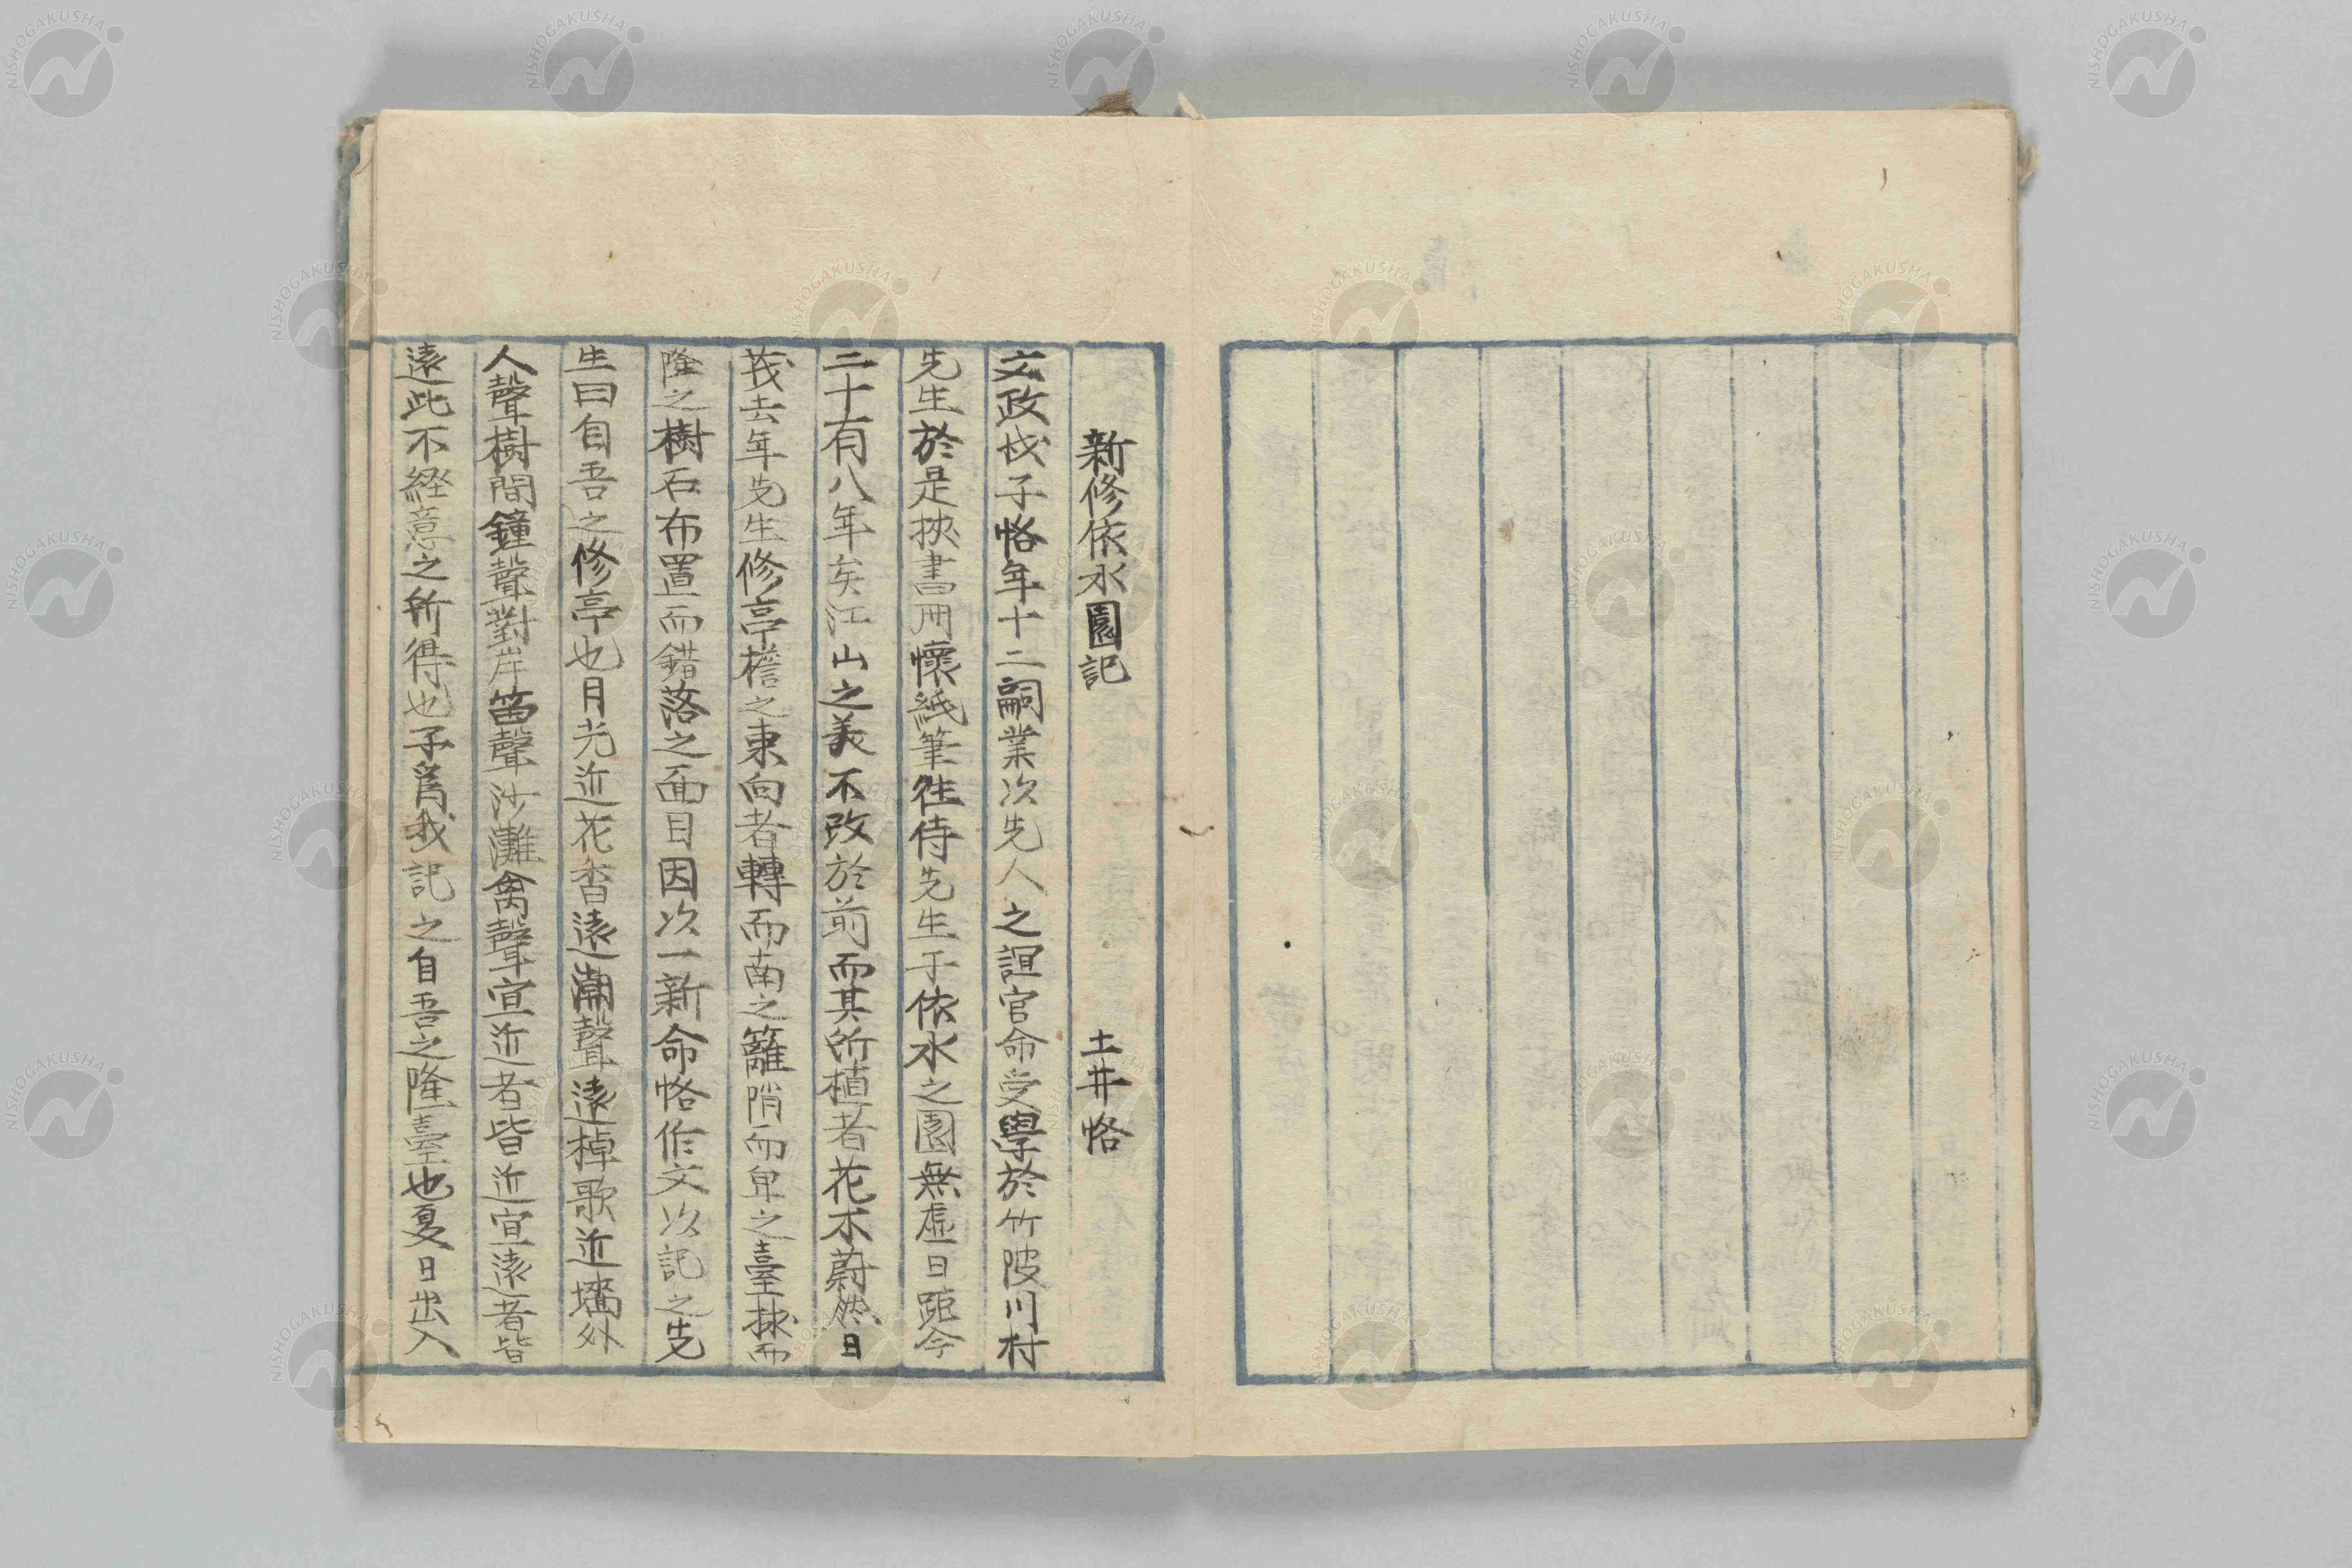 新修依水園記　土井恪
文政戊子恪年十二嗣業次先人之諠官命受學於竹陂川村
先生於是挾書冊懷紙筆往侍先生于依水之園無虛日距今
二十有八年矣江山之美不改於前而其所植者花木蔚然日
茂去年先生修亭檐之東向者轉而南之籬階而卑之臺捄而
隆之樹石布置而錯落之面目因次一新命恪作文次記之先
生曰自吾之修亭也月光近花香遠近潮聲遠棹歌近墻外
人聲樹間鐘聲對岸笛聲沙灘禽聲宜近者皆近宜遠者皆
遠此不経意之所得也子爲我記之自吾之隆臺也夏日出入
NISHOGAKUSHA